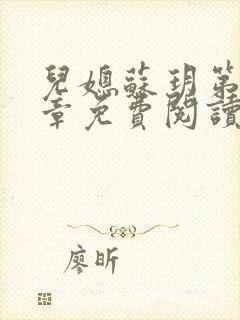 兒媳蘇玥第
章免費閱讀
廖昕